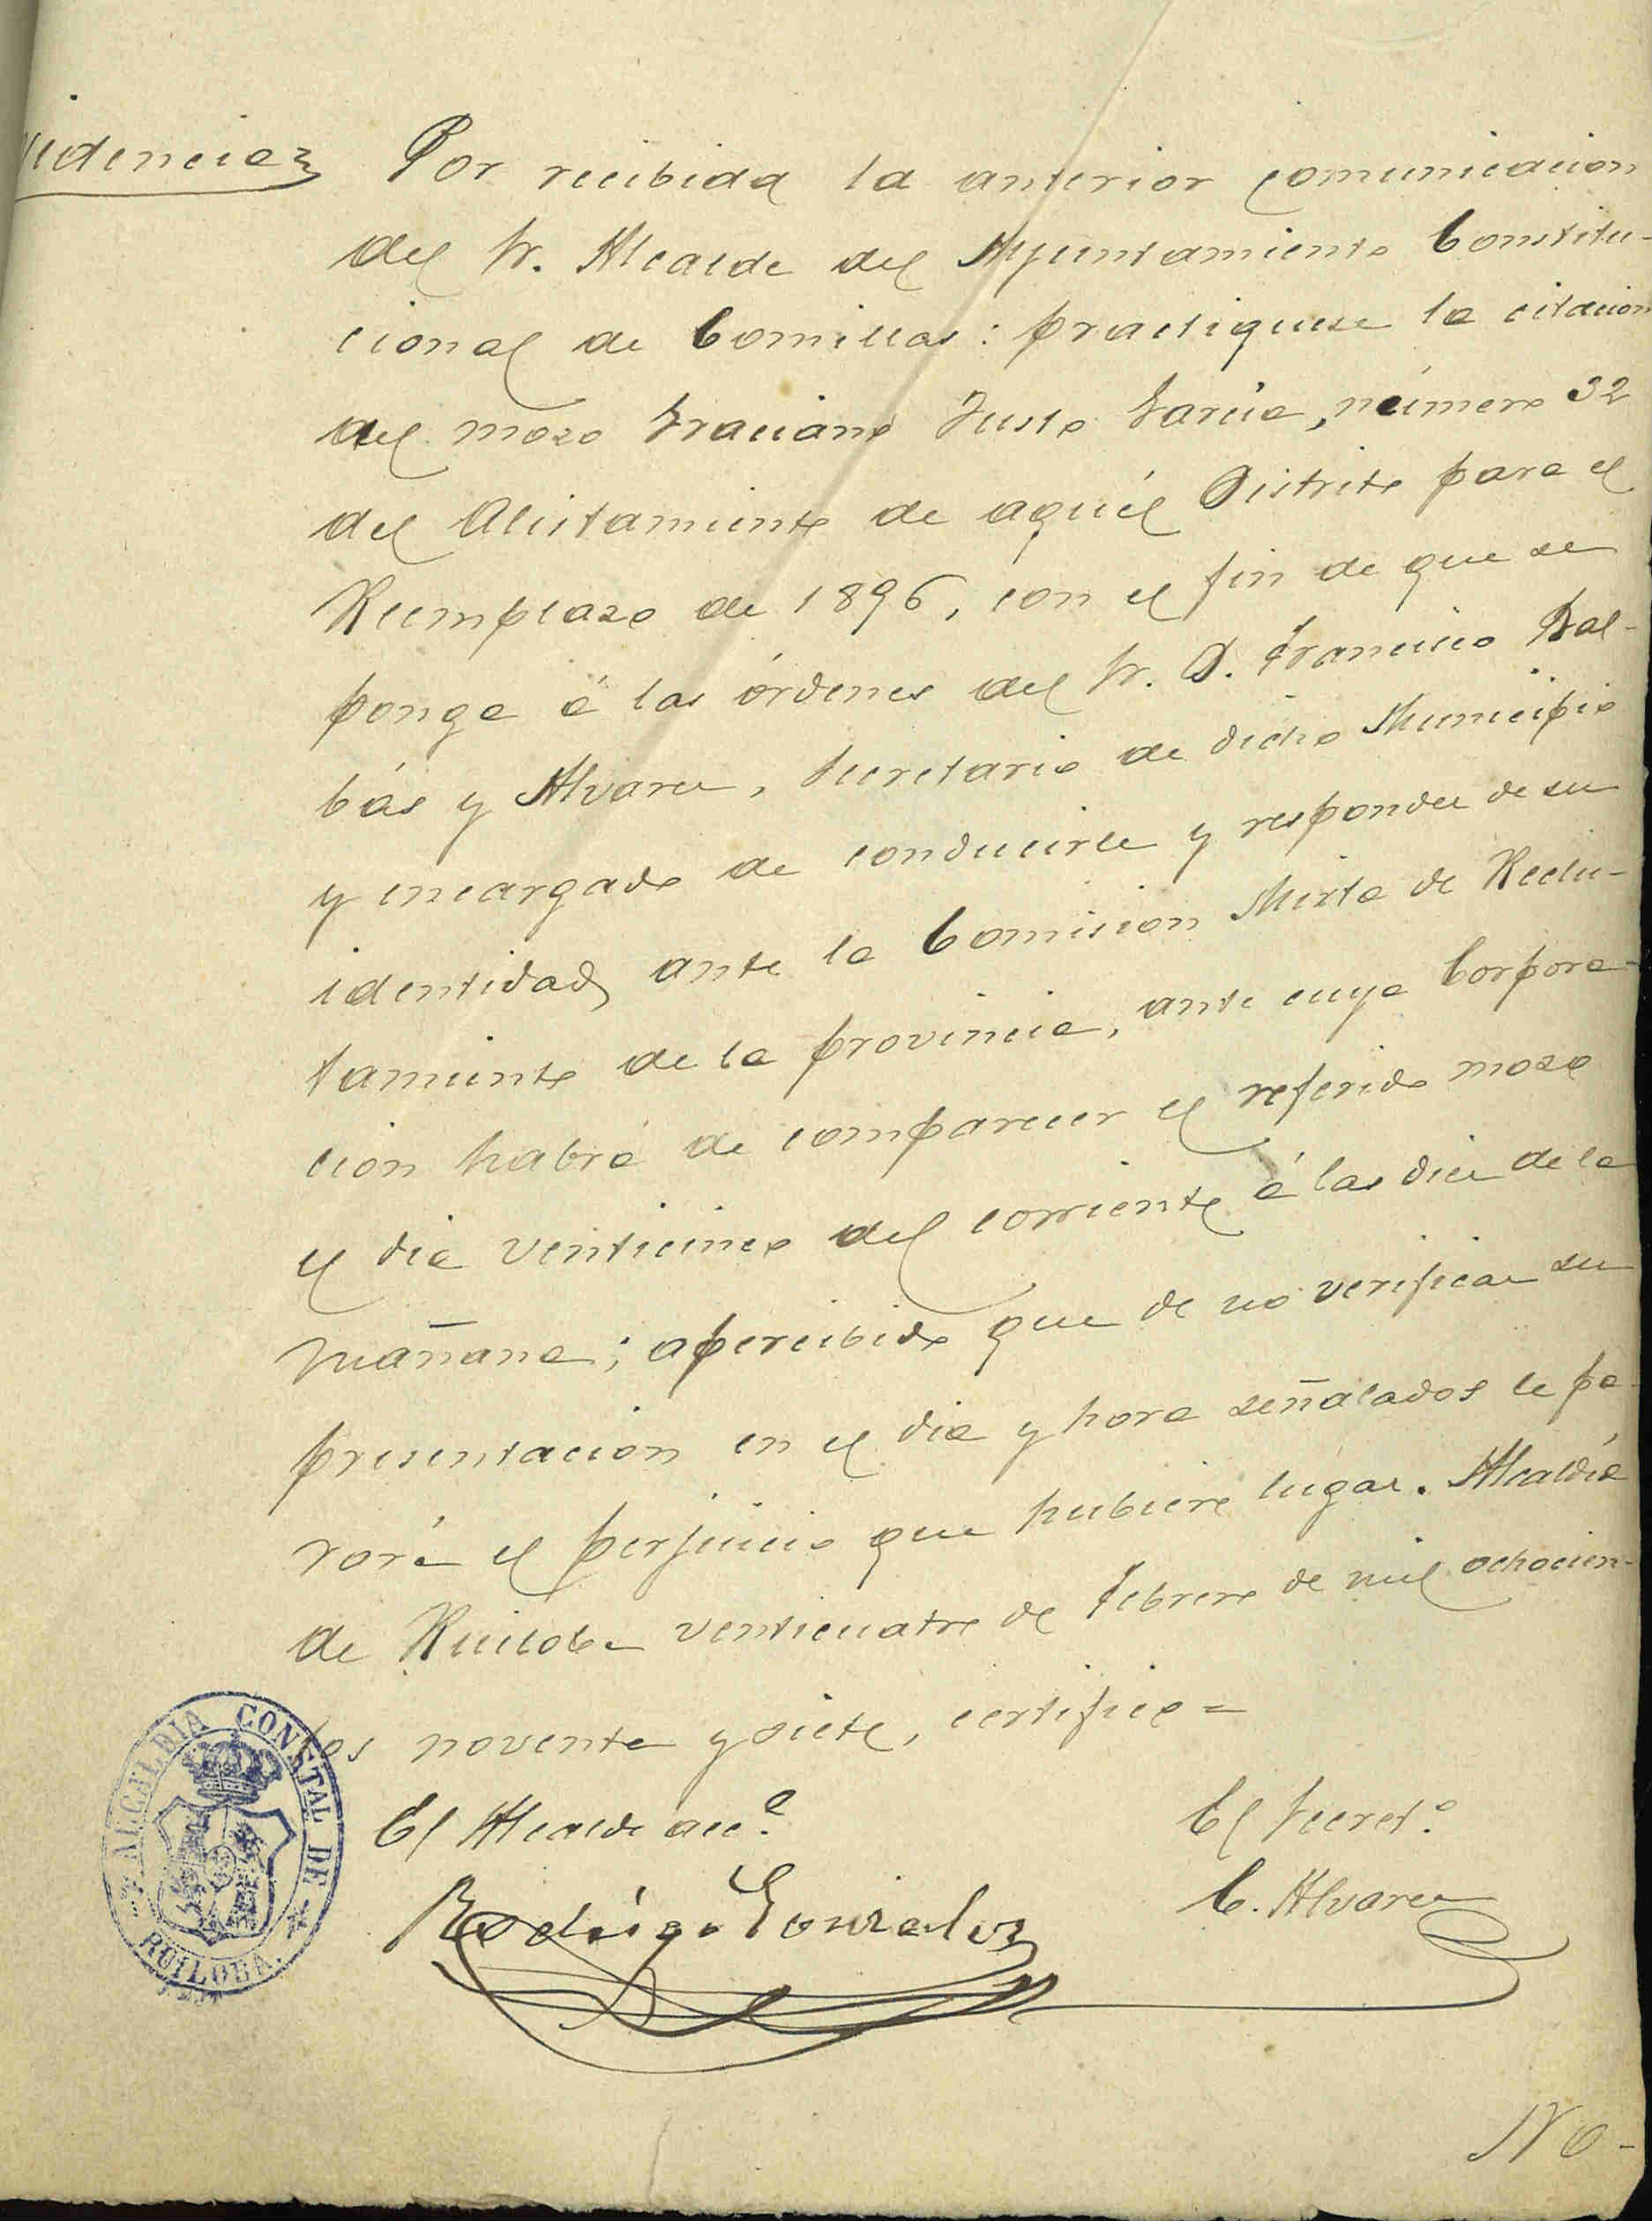 videncia
Por recibida la anterior comunicacion
del Sr. Alcalde del Ayuntamiento Constitu-
cional de Comillas: practiquese la citacion
del mozo Graciano Justo Garcia, número 32
del Alistamiento de aquél Distrito para el
Reemplazo de 1896, con el fin de que se
ponga á las órdenes del Sr. D. Francisco Bal-
bás y Alvarez, Secretario de dicho Municipio
y encargado de conducirle y responder de su
identidad ante la Comision Mixta de Reclu-
tamiento de la provincia, ante cuya Corpora-
cion habrá de comparecer el referido mozo
el dia venticinco del corriente á las diez de la
mañana; apercibido que de no verificar su
presentacion en el dia y hora señalados le pa-
rará el perjuicio que hubiere lugar. Alcaldía
de Ruiloba venticuatro de Febrero de mil ochocien-
tos noventa y siete, certifico=
El Alcalde acc.l
El Secret.o
Rodrigo Gonzalez
C. Alvarez
ALCALDIA CONSTAL DE RUILOBA.
No-